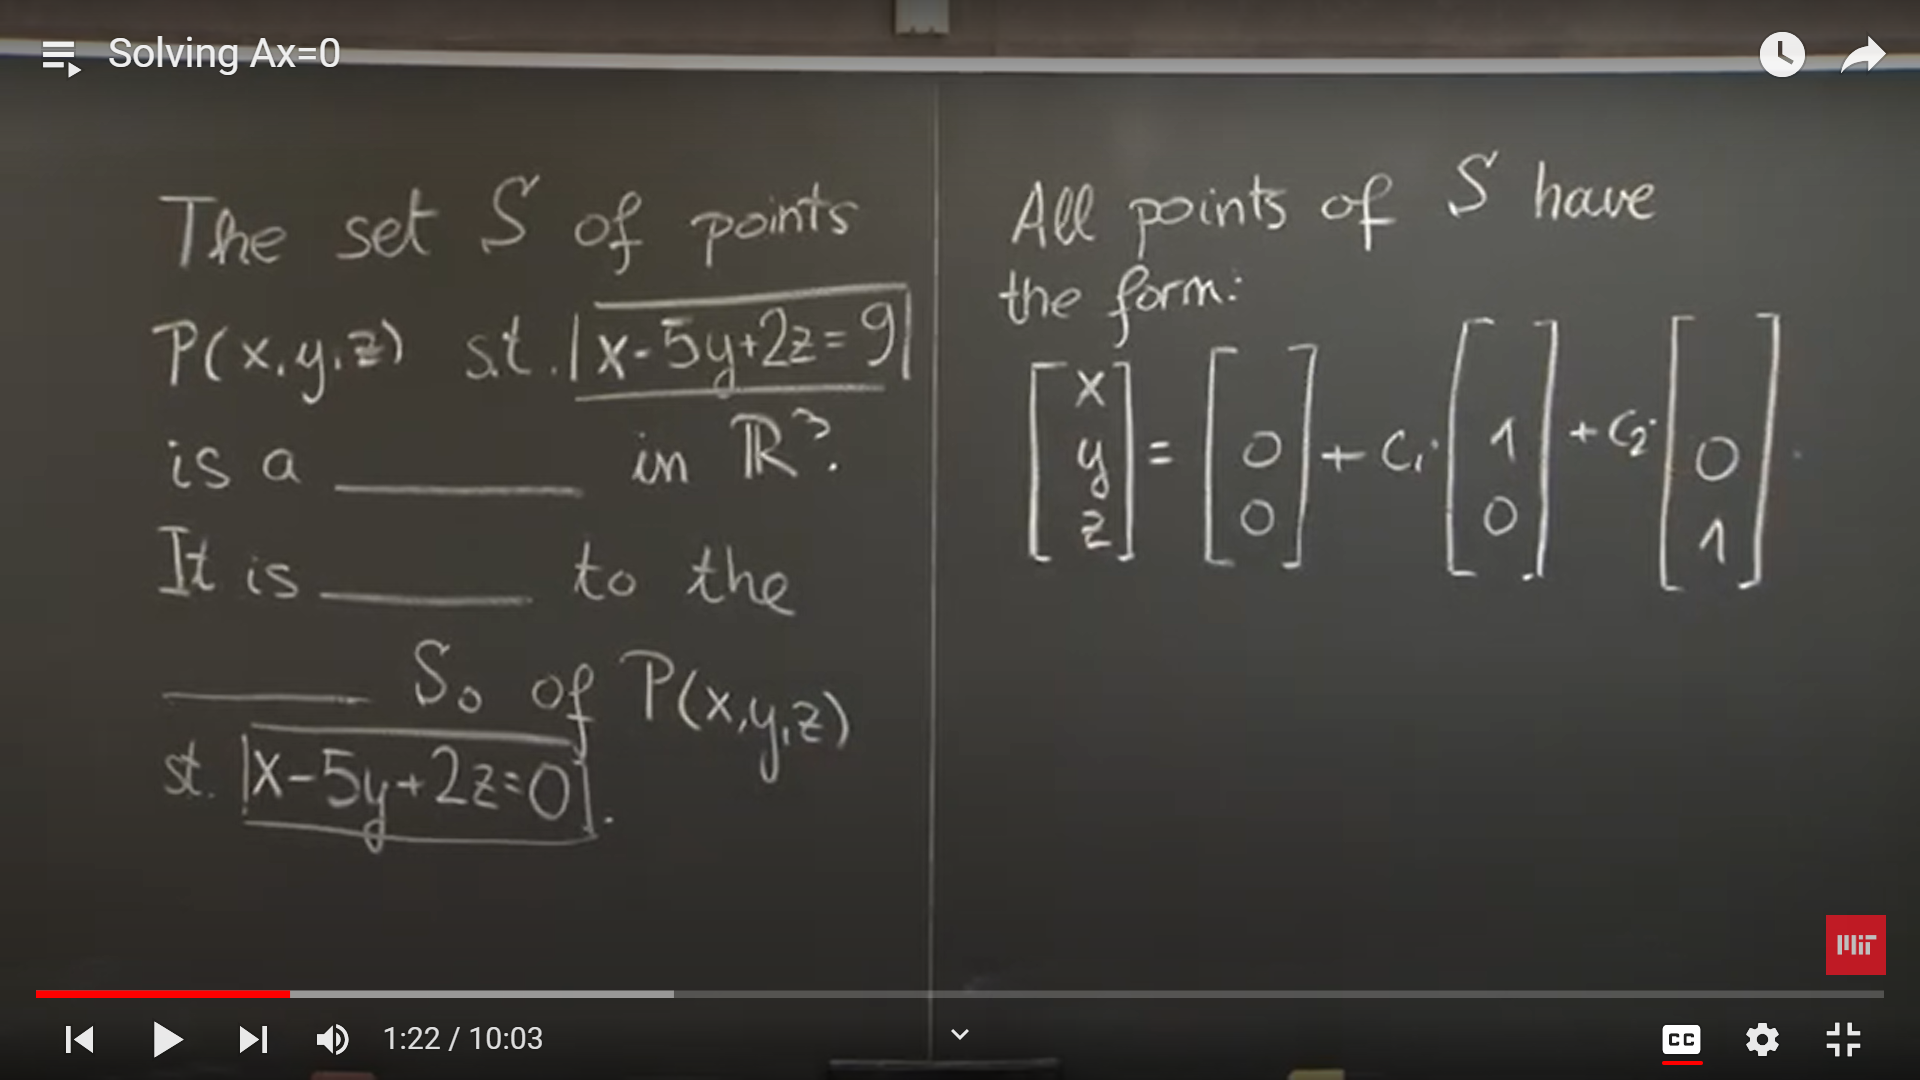 Solving Ax=0
The set S of points
P(x,y,z) s.t. x-5y+2z=9
is a ______ in R³.
It is ______ to the
______ S₀ of P(x,y,z)
st. x-5y+2z=0.
All points of S have
the form:
[x y z] = [  0 0] + C₁·[  1 0] + C₂·[  0 1].
MIT
1:22 / 10:03
CC